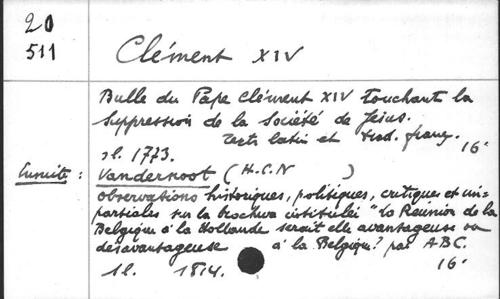 20
511
Clément XIV
Bulle du Pape Clément XIV touchant la
suppression de la Société de Jésus.
Texte latin et trad. franç.
s.l. 1773. 16°
Ensuite : Vandernoot (H.C.N )
Observations historiques, politiques, critiques et im-
partiales sur la brochure intitulée "La Réunion de la
Belgique à la Hollande serait elle avantageuse ou
désavantageuse à la Belgique? par A.B.C.
s.l. 1814. 16°